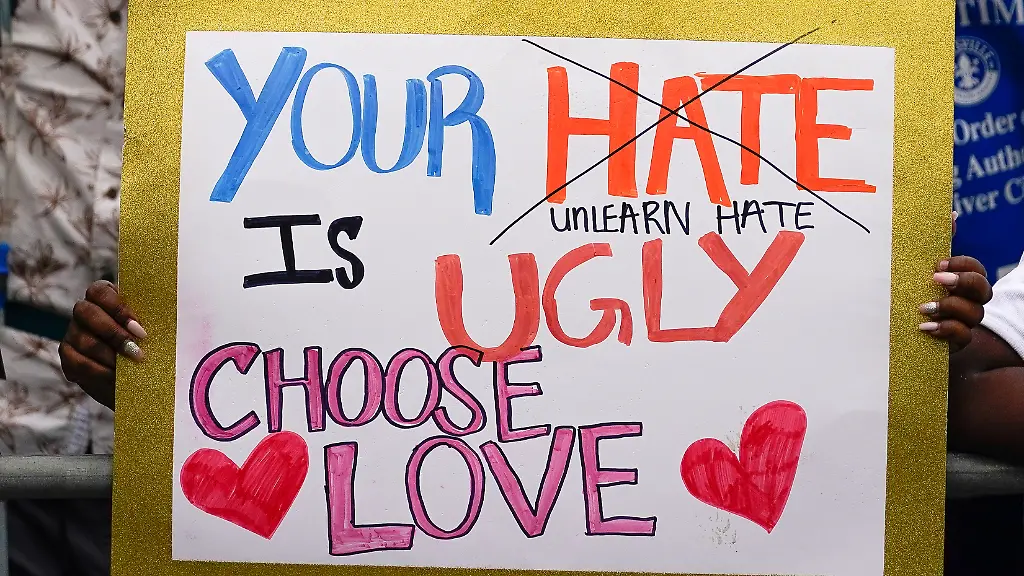 YOUR HATE
UNLEARN HATE
IS UGLY
CHOOSE
LOVE
TIM
Order
Autho
iver C